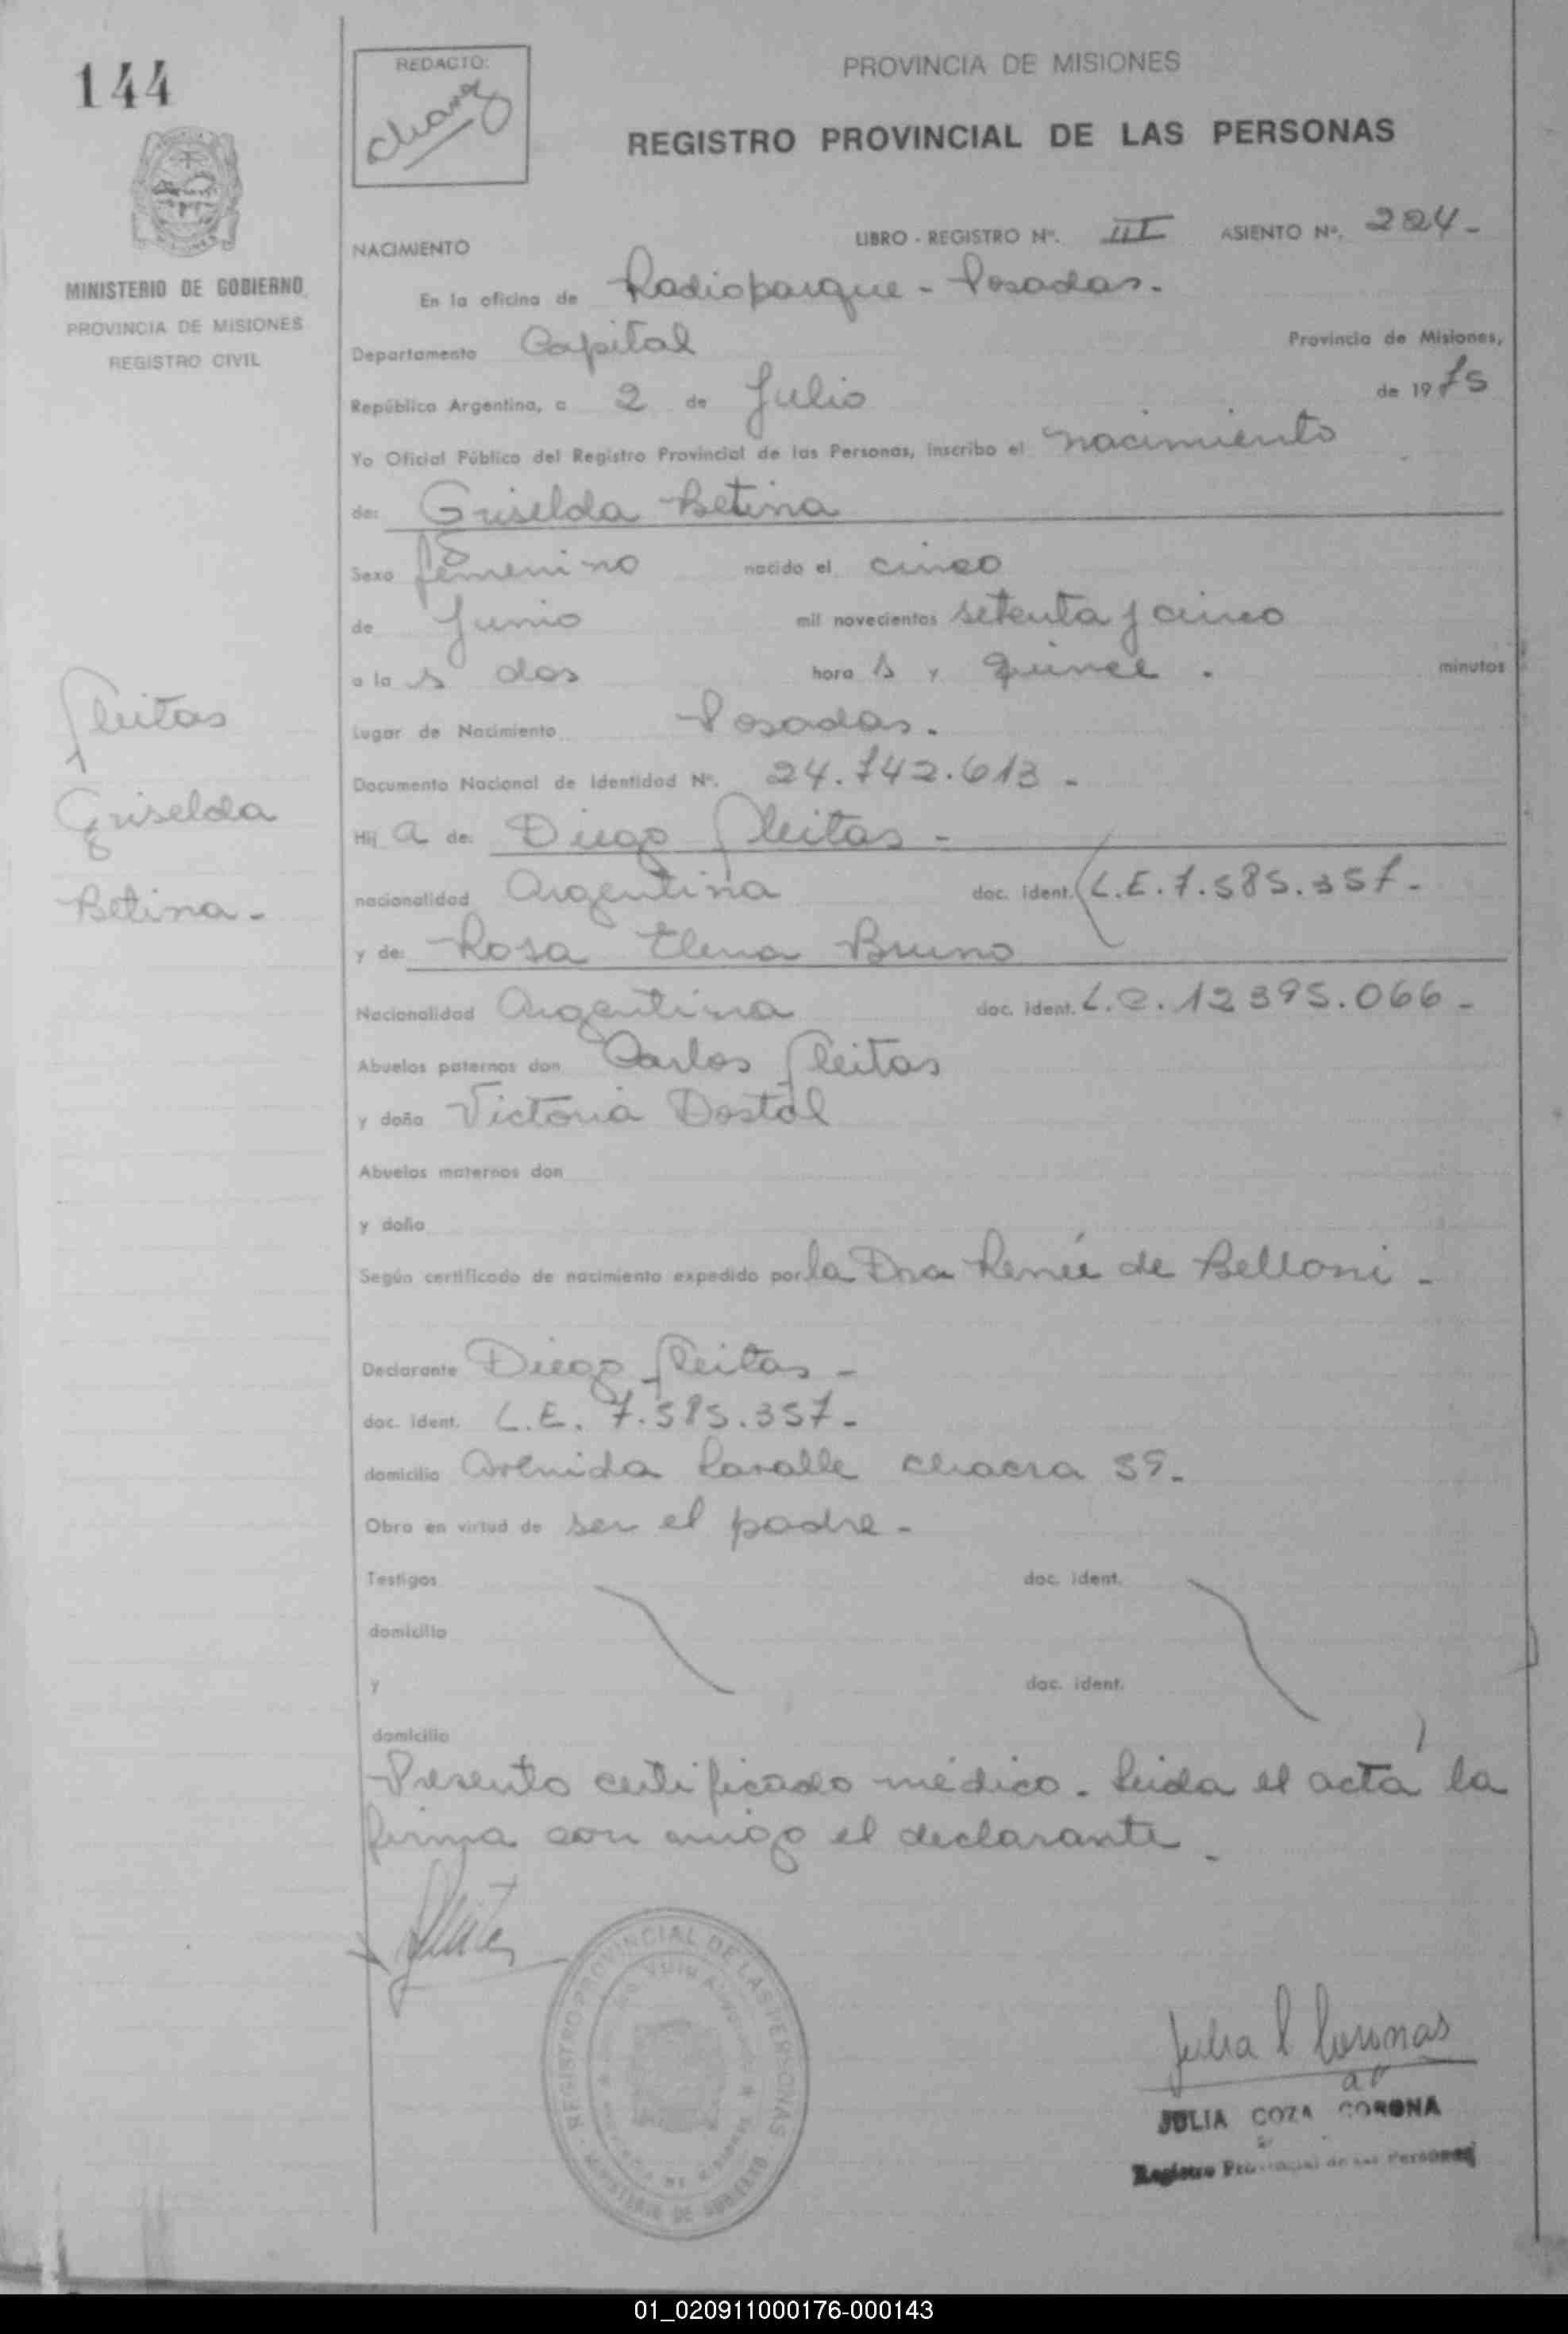 144
REDACTO:
PROVINCIA DE MISIONES
REGISTRO PROVINCIAL DE LAS PERSONAS
MINISTERIO DE GOBIERNO
PROVINCIA DE MISIONES
REGISTRO CIVIL
NACIMIENTO
LIBRO - REGISTRO Nº. III ASIENTO Nº. 224-
En la oficina de Radioparque - Posadas.
Departamento Capital Provincia de Misiones,
República Argentina, a 2 de Julio de 1975
Yo Oficial Público del Registro Provincial de las Personas, inscribo el nacimiento
de: Griselda Betina
Sexo femenino nacido el cinco
de Junio mil novecientos setenta y cinco
a la s dos hora s y quince . minutos
Lugar de Nacimiento Posadas.
Documento Nacional de Identidad Nº. 24.742.613 -
Hij a de: Diego Fleitas -
nacionalidad Argentina doc. ident. L.E. 7.585.357-
y de: Rosa Elena Bruno
Nacionalidad Argentina doc. ident. L.C. 12395.066-
Abuelos paternos don Carlos Fleitas
y doña Victoria Dostal
Abuelos maternos don
y doña
Según certificado de nacimiento expedido por la Dra Renée de Belloni -
Declarante Diego Fleitas -
doc. ident. L.E. 7.585.357-
domicilio Avenida Lavalle chacra 59-
Obra en virtud de ser el padre -
Testigos doc. ident.
domicilio
y doc. ident.
domicilio
Presento certificado médico. Leida el acta la
firma con migo el declarante -
Fleitas
Griselda
Betina-
REGISTRO PROVINCIAL DE LAS PERSONAS
MINISTERIO DE GOBIERNO
JULIA COZA CORONA
Registro Provincial de las Personas
01_020911000176-000143